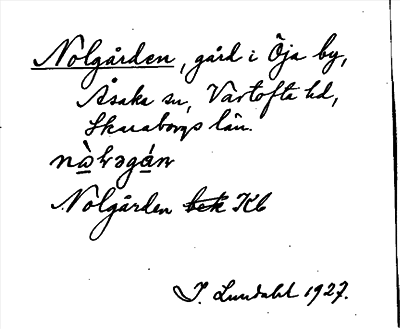 Nolgården, gård i Öja by,
Åsaka sn, Vartofta hd,
Skaraborgs län.
Nolgården bek Kb
I. Lundahl 1927.